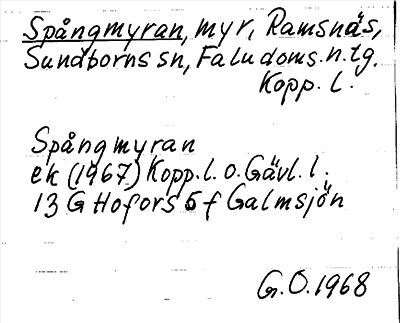 Spångmyran, myr, Ramsnäs,
Sundborns sn, Falu doms. n. tg.
Kopp. l.
Spångmyran
ek (1967) Kopp. l. o. Gävl. l.
13 G Hofors 5 f Galmsjön
G. O. 1968